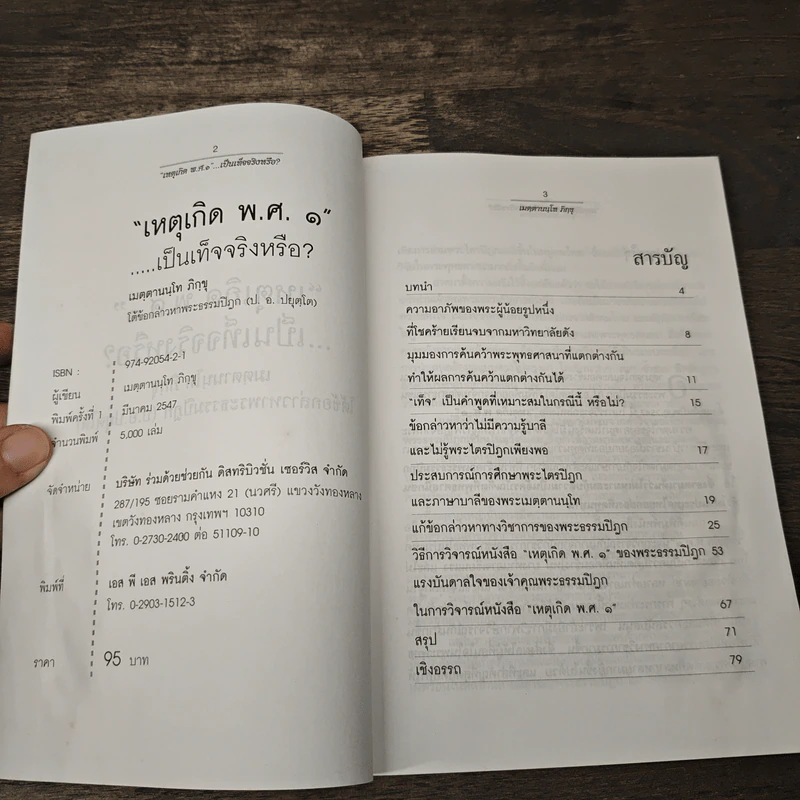 2
"เหตุเกิด พ.ศ.๑"...เป็นเท็จจริงหรือ?
"เหตุเกิด พ.ศ. ๑"
.....เป็นเท็จจริงหรือ?
เมตฺตานนฺโท ภิกฺขุ
โต้ข้อกล่าวหาพระธรรมปิฎก (ป. อ. ปยุตฺโต)
ISBN : 974-92054-2-1
ผู้เขียน เมตฺตานนฺโท ภิกฺขุ
พิมพ์ครั้งที่ 1 มีนาคม 2547
จำนวนพิมพ์ 5,000 เล่ม
จัดจำหน่าย บริษัท ร่วมด้วยช่วยกัน ดิสทริบิวชั่น เซอร์วิส จำกัด
287/195 ซอยรามคำแหง 21 (นวศรี) แขวงวังทองหลาง
เขตวังทองหลาง กรุงเทพฯ 10310
โทร. 0-2730-2400 ต่อ 51109-10
พิมพ์ที่ เอส พี เอส พรินติ้ง จำกัด
โทร. 0-2903-1512-3
ราคา 95 บาท
3
เมตฺตานนฺโท ภิกฺขุ
สารบัญ
บทนำ 4
ความอาภัพของพระผู้น้อยรูปหนึ่ง
ที่โชคร้ายเรียนจบจากมหาวิทยาลัยดัง 8
มุมมองการค้นคว้าพระพุทธศาสนาที่แตกต่างกัน
ทำให้ผลการค้นคว้าแตกต่างกันได้ 11
"เท็จ" เป็นคำพูดที่เหมาะสมในกรณีนี้ หรือไม่? 15
ข้อกล่าวหาว่าไม่มีความรู้บาลี
และไม่รู้พระไตรปิฎกเพียงพอ 17
ประสบการณ์การศึกษาพระไตรปิฎก
และภาษาบาลีของพระเมตฺตานนฺโท 19
แก้ข้อกล่าวหาทางวิชาการของพระธรรมปิฎก 25
วิธีการวิจารณ์หนังสือ "เหตุเกิด พ.ศ. ๑" ของพระธรรมปิฎก 53
แรงบันดาลใจของเจ้าคุณพระธรรมปิฎก
ในการวิจารณ์หนังสือ "เหตุเกิด พ.ศ. ๑" 67
สรุป 71
เชิงอรรถ 79